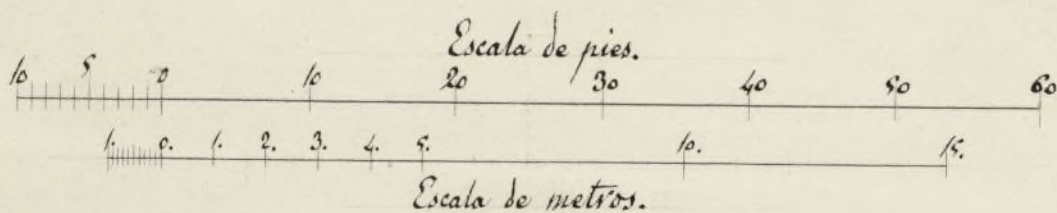 Escala de pies.
10 5 0 10 20 30 40 50 60
1. 0. 1. 2. 3. 4. 5. 10. 15.
Escala de metros.